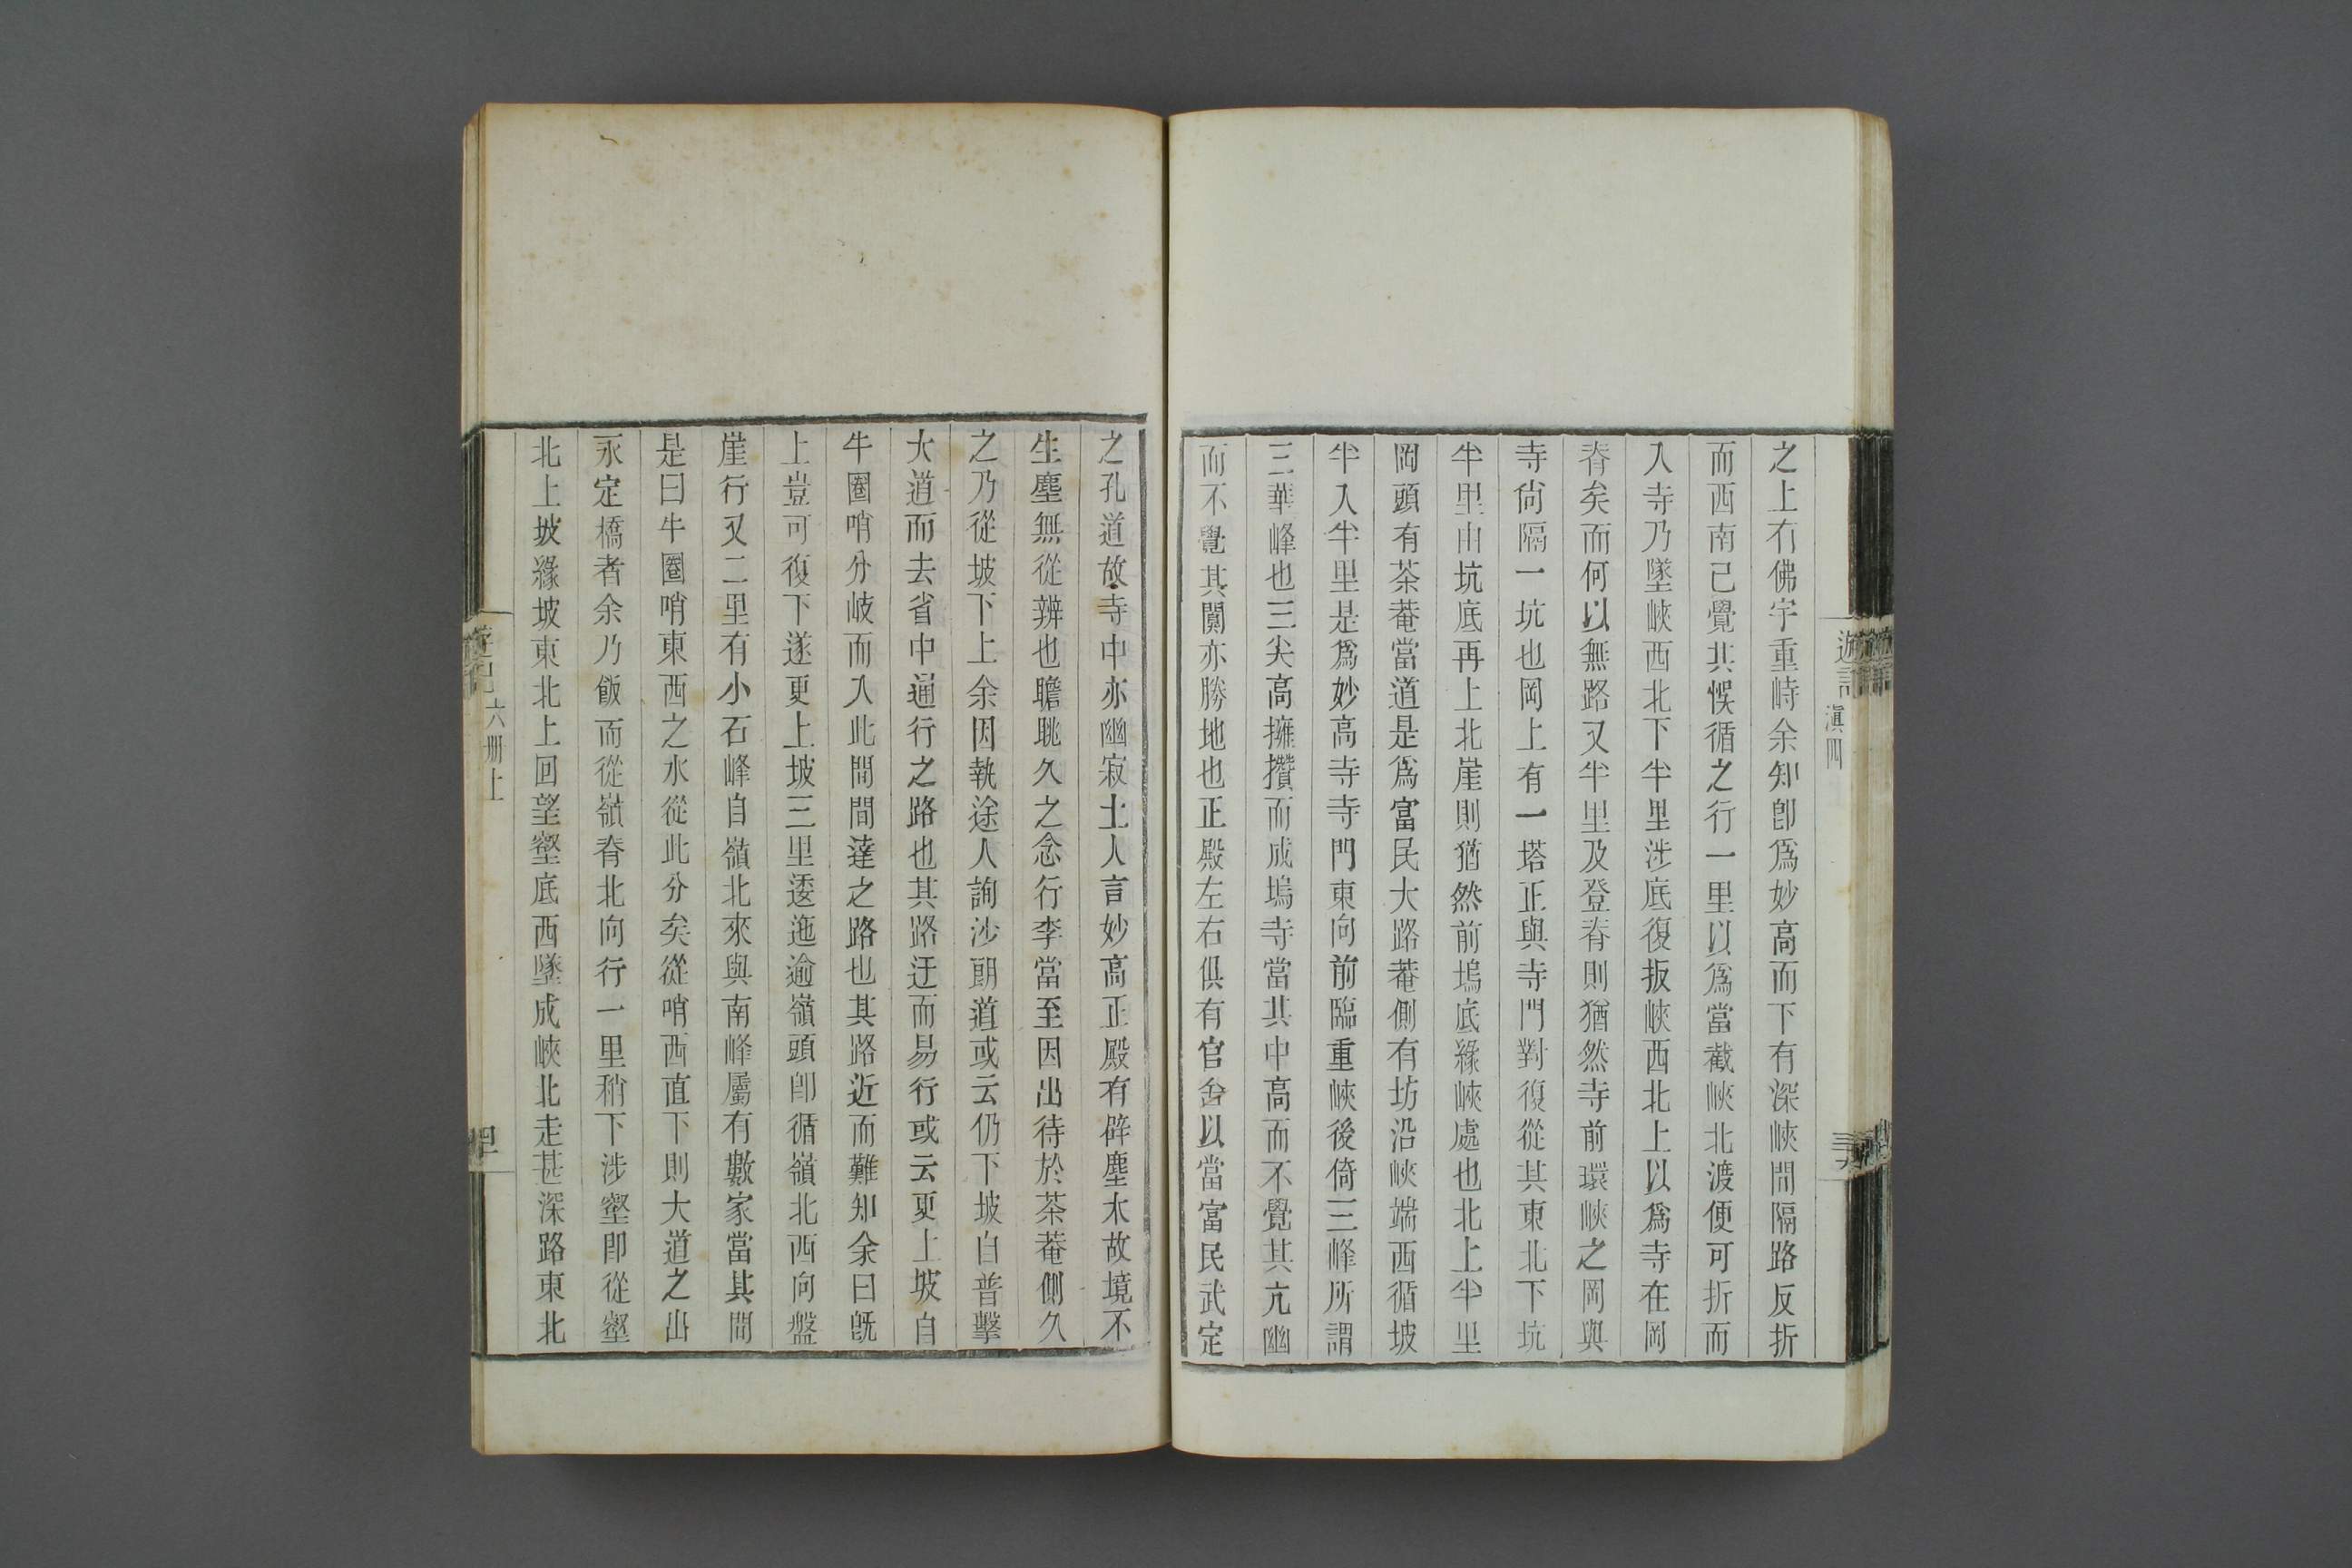 之上有佛宇重峙余知卽爲妙高而下有深峽間隔路反折
而西南已覺其悞循之行一里以爲當截峽北渡便可折而
入寺乃墜峽西北下半里涉底復扳峽西北上以爲寺在岡
脊矣而何以無路又半里及登脊則猶然寺前環峽之岡與
寺尙隔一坑也岡上有一塔正與寺門對復從其東北下坑
半里由坑底再上北崖則猶然前塢底緣峽處也北上半里
岡頭有茶菴當道是爲富民大路菴側有坊沿峽端西循坡
半入半里是爲妙高寺寺門東向前臨重峽後倚三峰所謂
三華峰也三尖高擁攢而成塢寺當其中高而不覺其亢幽
而不覺其闃亦勝地也正殿左右俱有官舍以當富民武定
遊記
滇四
三九
之孔道故寺中亦幽寂土人言妙高正殿有辟塵木故境不
生塵無從辨也瞻眺久之念行李當至因出待於茶菴側久
之乃從坡下上余因執途人詢沙朗道或云仍下坡自普擊
大道而去省中通行之路也其路迂而易行或云更上坡自
牛圈哨分岐而入此間間達之路也其路近而難知余曰旣
上豈可復下遂更上坡三里逶迤逾嶺頭卽循嶺北西向盤
崖行又二里有小石峰自嶺北來與南峰屬有數家當其間
是曰牛圈哨東西之水從此分矣從哨西直下則大道之出
永定橋者余乃飯而從嶺脊北向行一里稍下涉壑卽從壑
北上坡緣坡東北上回望壑底西墜成峽北走甚深路東北
遊記
六冊上